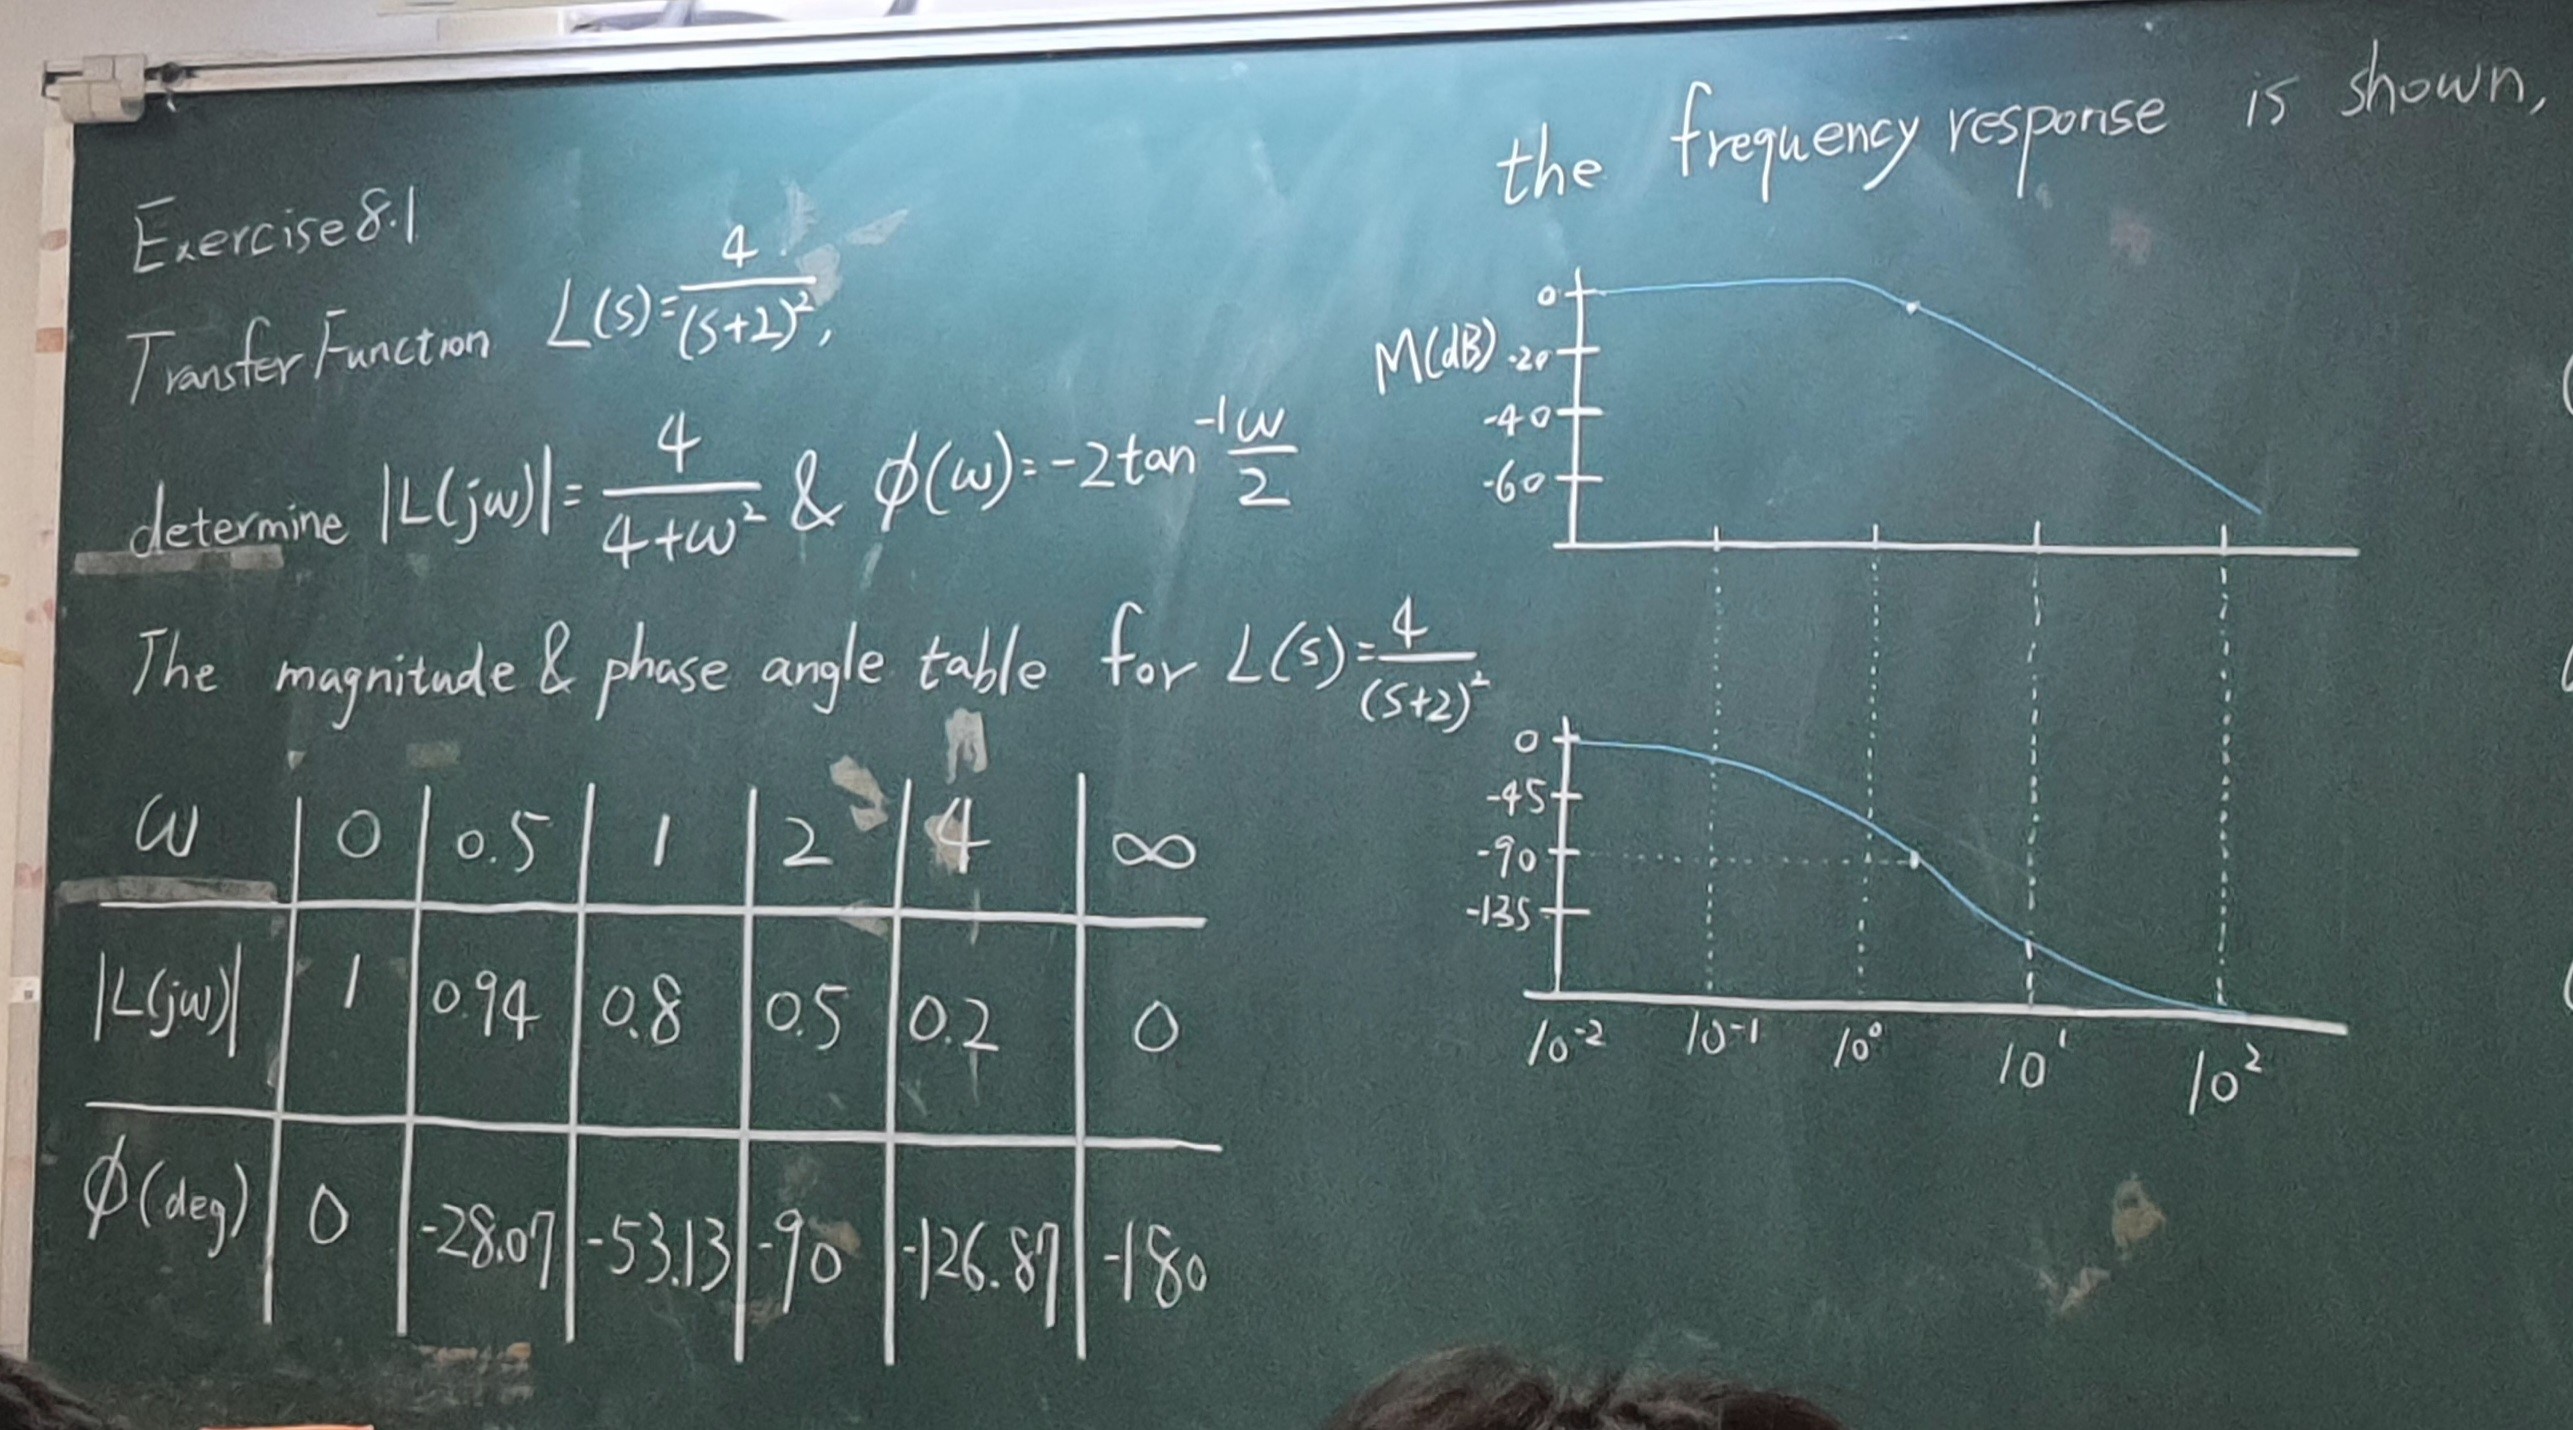 Exercise 8.1
Transfer Function L(s)=4/(s+2)²,
determine |L(jω)|=4/(4+ω²) & ϕ(ω)=-2tan⁻¹ω/2
The magnitude & phase angle table for L(s)=4/(s+2)²
ω | 0 | 0.5 | 1 | 2 | 4 | ∞
|L(jω)| | 1 | 0.94 | 0.8 | 0.5 | 0.2 | 0
ϕ(deg) | 0 | -28.07 | -53.13 | -90 | -126.87 | -180
the frequency response is shown,
M(dB)
0
-20
-40
-60
0
-45
-90
-135
10⁻² 10⁻¹ 10⁰ 10¹ 10²